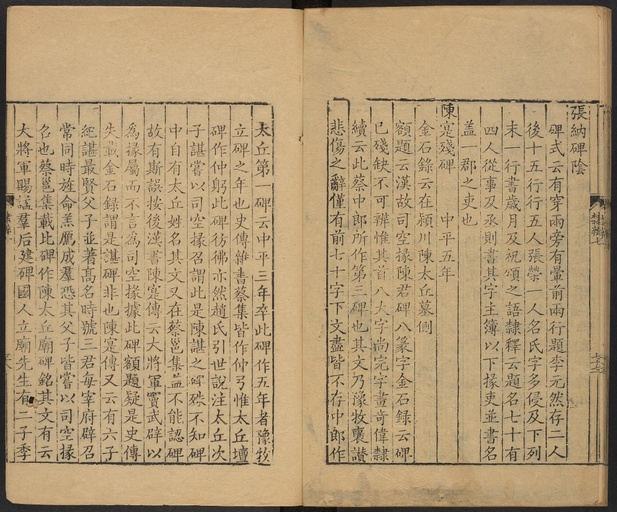 張納碑陰
碑式云有穿兩旁有暈前兩行題李元然存二人
後十五行行五人張榮一人名氏字多侵及下列
末一行書歲月及祝頌之語隸釋云題名七十有
四人從事及丞則書其字主簿以下掾吏並書名
蓋一郡之吏也
陳寔殘碑 中平五年
金石錄云在潁川陳太丘墓側
額題云漢故司空掾陳君碑八篆字金石錄云碑
已殘缺不可辨惟其首八大字尚完字畫奇偉隸
續云此蔡中郎所作第三碑也其文乃豫牧褒讃
悲傷之辭僅有前七十字下文盡皆不存中郎作
太丘第一碑云中平三年卒此碑作五年者豫牧
立碑之年也史傳雜書蔡集皆作仲弓惟太丘壇
碑作仲躬此碑彷彿亦然趙氏引世說注太丘次
子諶嘗以司空掾召謂此是陳諶之碑殊不知碑
中自有太丘姓名其文又在蔡邕集蓋不能認碑
故有斯誤按後漢書陳寔傳云大將軍竇武辟以
為掾屬而不言為司空掾據此碑額題疑是史傳
失載金石錄謂是諶碑非也陳寔傳又云有六子
紀諶最賢父子並著髙名時號三君每宰府辟召
常同時旌命羔鴈成羣恐其父子皆嘗以司空掾
名也蔡邕集載此碑作陳太丘廟碑銘其文有云
大將軍賜謚羣后建碑國人立廟先生有二子季